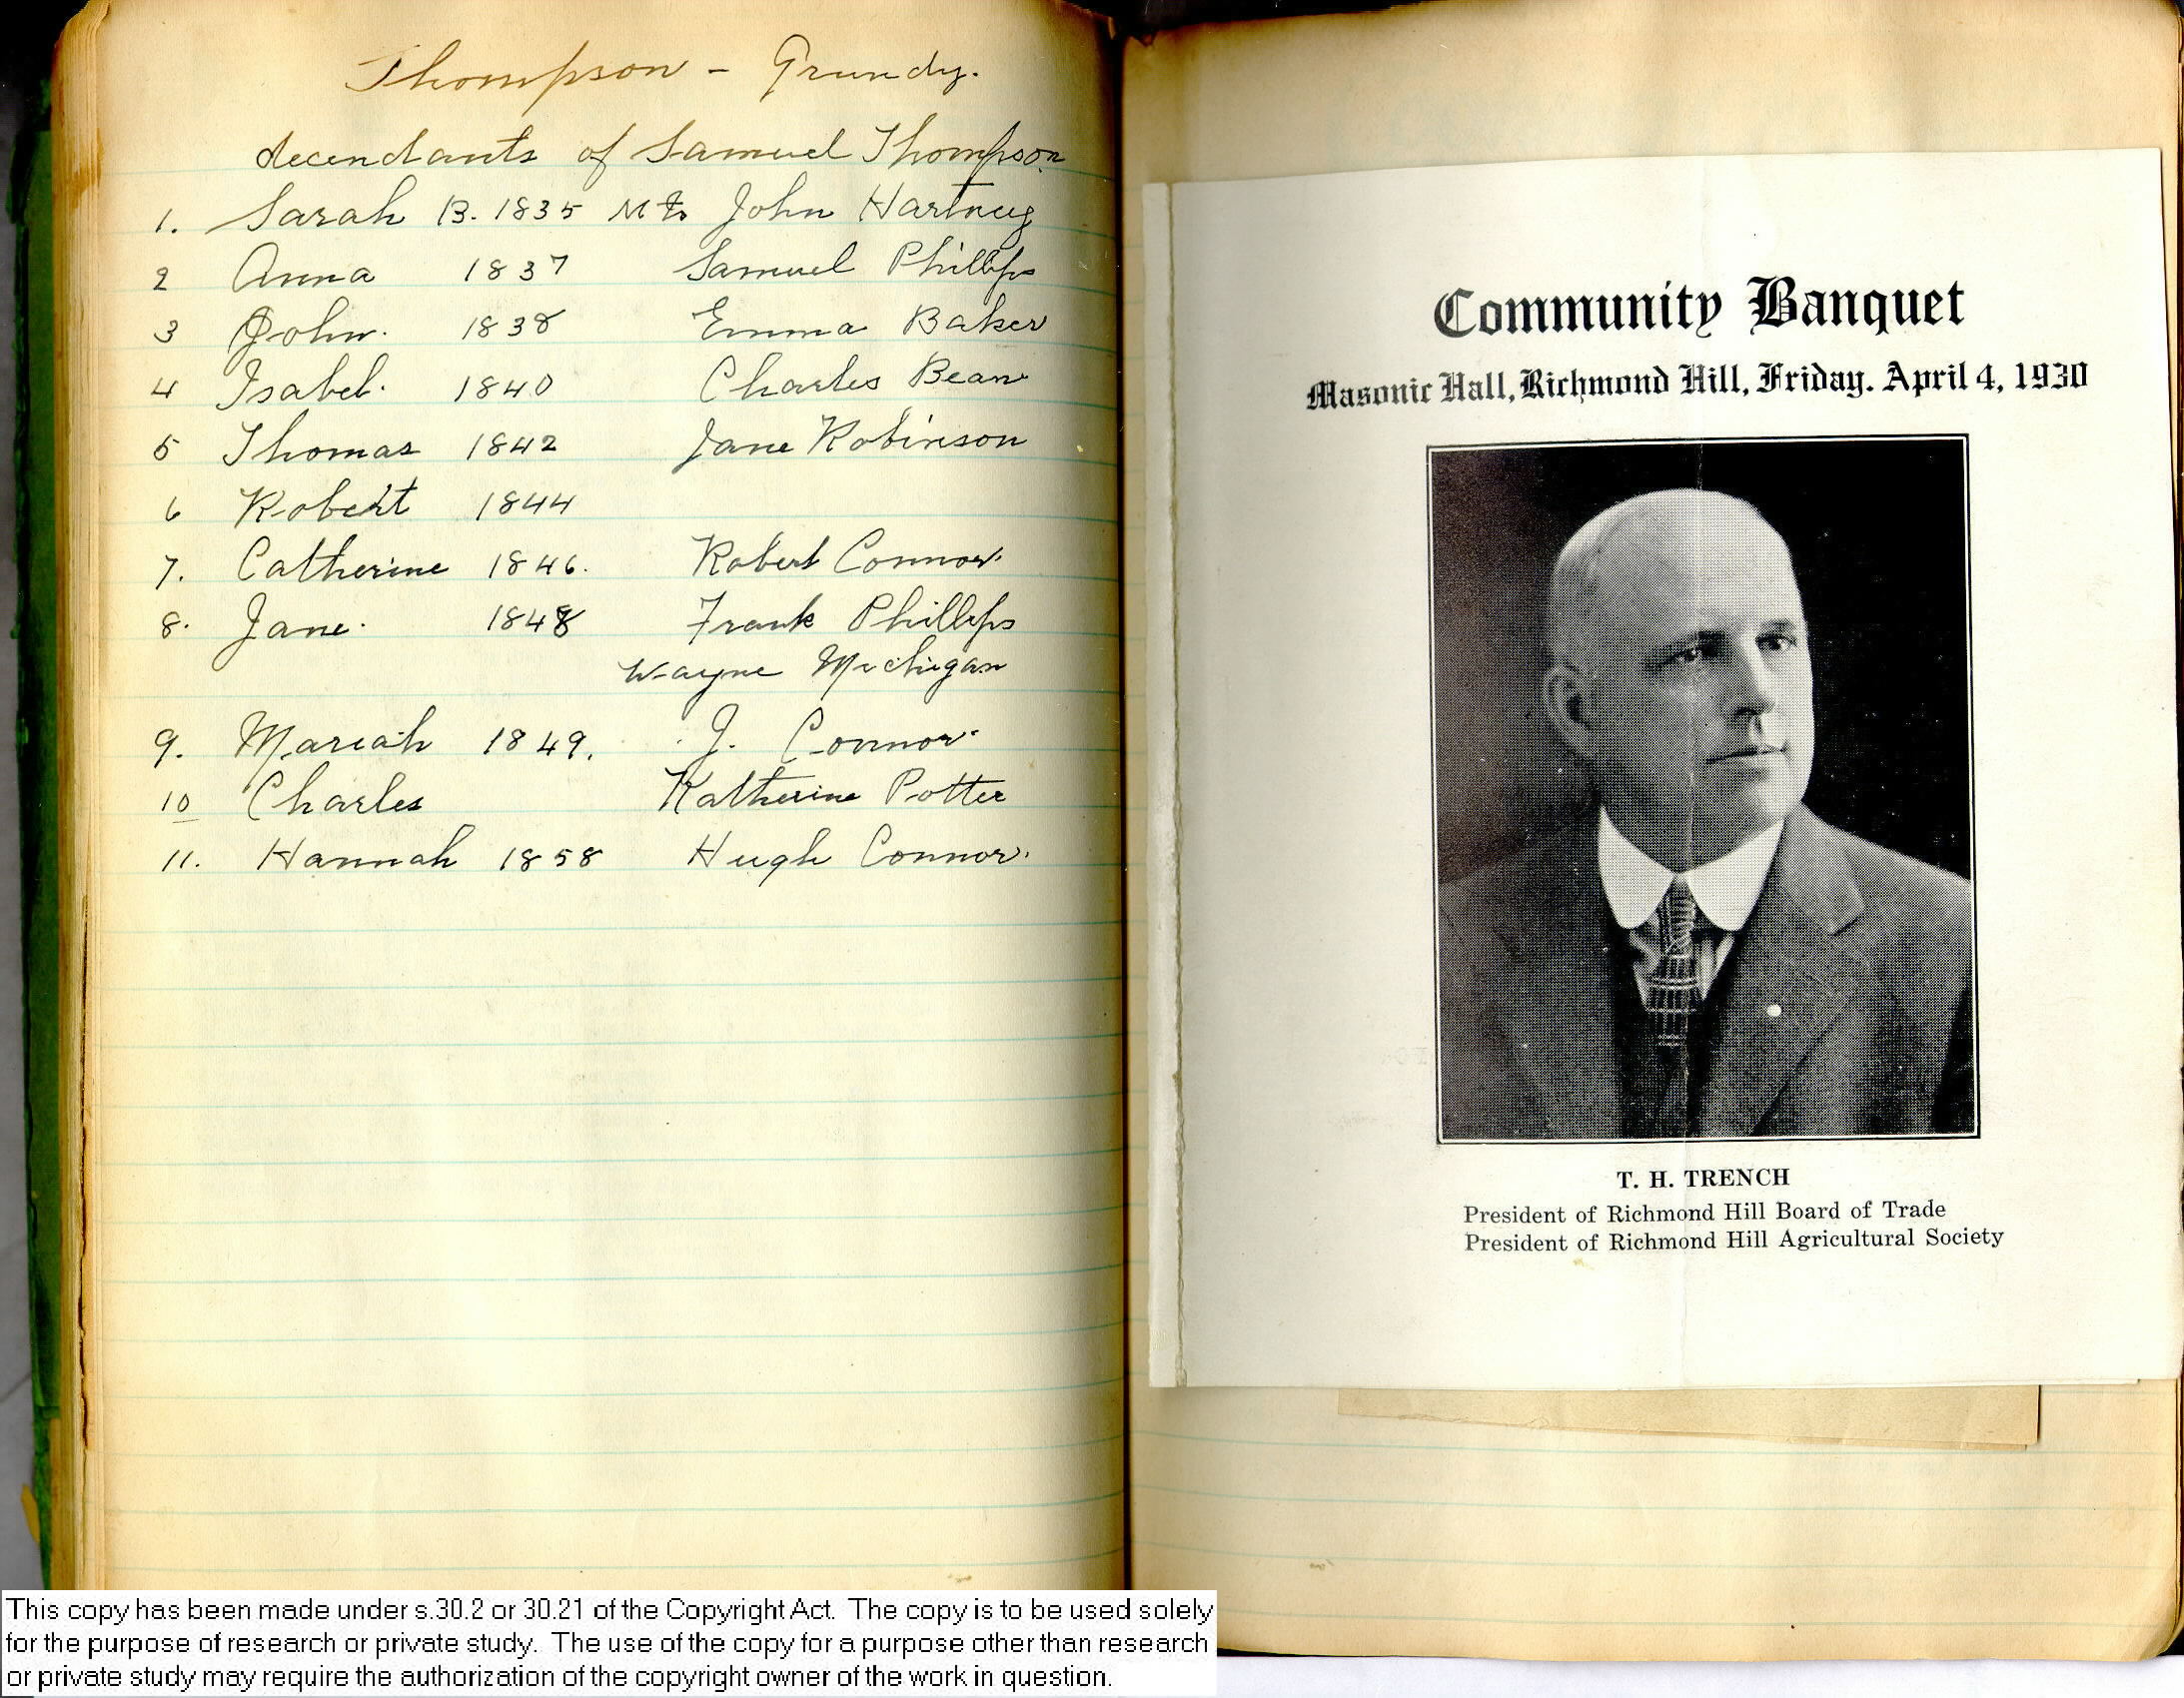 Thompson - Grundy.
decendants of Samuel Thompson.
1. Sarah B. 1835 M to John Hartney
2 Anna 1837 Samuel Phillips
3 John. 1838 Emma Baker
4 Isabel. 1840 Charles Bean
5 Thomas 1842 Jane Robinson
6 Robert 1844
7. Catherine 1846. Robert Connor.
8. Jane. 1848 Frank Phillips
Wayne Michigan
9. Mariah 1849. J. Connor.
10 Charles Katherine Potter
11. Hannah 1858 Hugh Connor.
Community Banquet
Masonic Hall, Richmond Hill, Friday. April 4, 1930
T. H. TRENCH
President of Richmond Hill Board of Trade
President of Richmond Hill Agricultural Society
This copy has been made under s.30.2 or 30.21 of the Copyright Act. The copy is to be used solely
for the purpose of research or private study. The use of the copy for a purpose other than research
or private study may require the authorization of the copyright owner of the work in question.